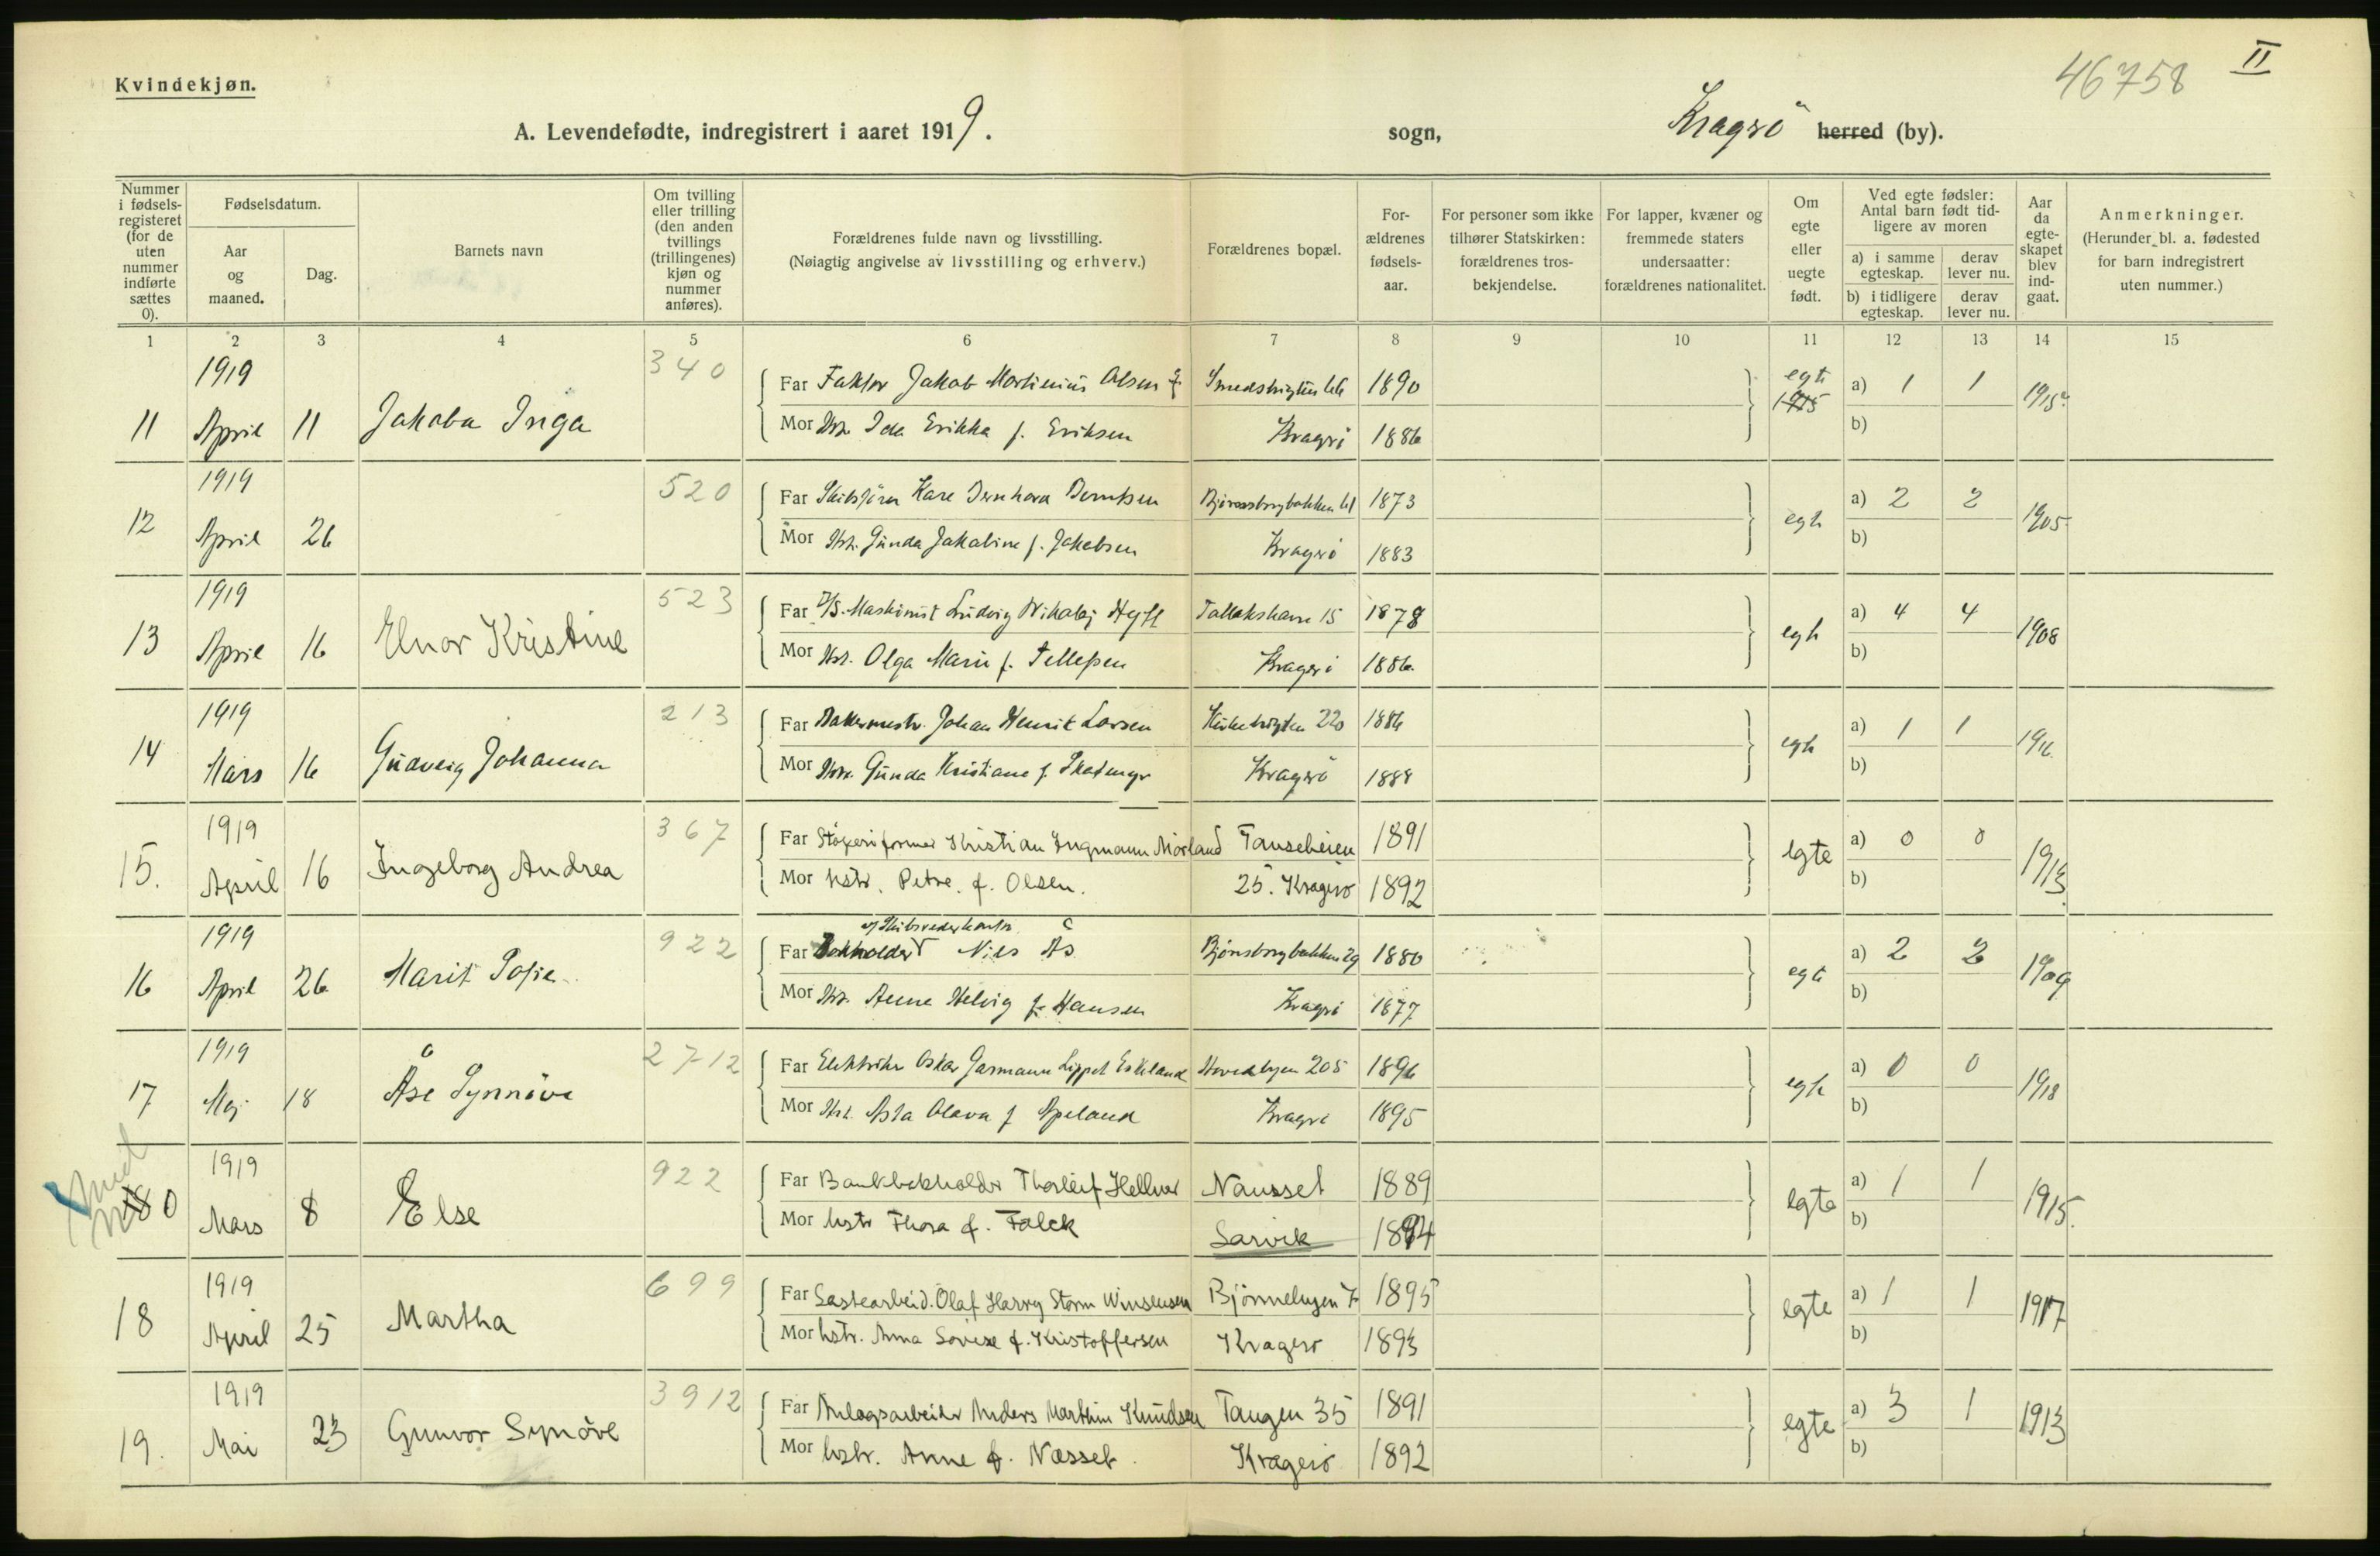 Kvindekjøn.
46758
II
A. Levendefødte, indregistrert i aaret 1919.
sogn,
Kragerö herred (by).
Nummer i fødsels-registeret (for de uten nummer indførte sættes 0).
Fødselsdatum.
Aar og maaned.
Dag.
Barnets navn
Om tvilling eller trilling (den anden tvillings (trillingenes) kjøn og nummer anføres).
Forældrenes fulde navn og livsstilling.
(Nøiagtig angivelse av livsstilling og erhverv.)
Forældrenes bopæl.
For-ældrenes fødsels-aar.
For personer som ikke tilhører Statskirken: forældrenes tros-bekjendelse.
For lapper, kvæner og fremmede staters undersaatter: forældrenes nationalitet.
Om egte eller uegte født.
Ved egte fødsler: Antal barn født tid-ligere av moren
a) i samme egteskap.
derav lever nu.
b) i tidligere egteskap.
derav lever nu.
Aar da egte-skapet blev ind-gaat.
Anmerkninger.
(Herunder bl. a. fødested for barn indregistrert uten nummer.)
1 2 3 4 5 6 7 8 9 10 11 12 13 14 15
1919 340
Far Faktor Jakob Martinius Olsen 1890 egte a) 1 1 1915
11 April 11 Jakoba Inga
Mor Hst. Ida Erikka f. Eriksen Kragerö 1886 b)
1919 520
Far Skibsfører Bernhard Berntsen 61 1873 a) 2 2
12 April 26 egte 1905
Mor Hst. Gunda Jakobine f. Jakobsen Kragerö 1883 b)
1919 523
Far D/S. Maskinist Ludvig Nikolaj 15 1878 a) 4 4
13 April 16 Elnor Kristine egte 1908
Mor Hst. Olga Marie f. Tellefsen Kragerö 1886 b)
1919 213
Far Bakermestr. Johan Henrik Larsen 220 1886 a) 1 1
14 Mars 16 Gudveig Johanna egte 1916
Mor Hst. Gunda Kristiane f. Kragerö 1888 b)
1919 367
Far Støperiformer Kristian Ingmann Mörland Tanseheien 1891 a) 0 0
15. April 16 Ingeborg Andrea egte 1913
Mor hstr. Petre. f. Olsen. 25. Kragerö 1892 b)
1919 922
Far Bokholder Nils Ås Bjönsborgbakken 29 1880 a) 2 2
16 April 26 Marit Sofie egte 1909
Mor Hst. Anna Helvig f. Hansen Kragerö 1877 b)
1919 2712
Far Elektriker Oskar Garmann Eskeland 205 1896 a) 0 0
17 Mai 18 Åse Synnöve egte 1918
Mor Hst. Asta Olava f. Apeland Kragerö 1895 b)
1919 922
Far Bankbokholder Thorleif Hellner Nausset 1889 a) 1 1
0 Mars 8 Else egte 1915.
Mor hstr Thora f. Falck Larvik 1894 b)
1919 699
Far Lastearbeid. Olaf Harry Storm Winsensen 7 1895 a) 1 1
18 April 25 Martha egte 1917
Mor hstr. Anna Lovise f. Kristoffersen Kragerö 1893 b)
1919 3912
Far Anlagsarbeider Anders Marthin Knudsen Tangen 35 1891 a) 3 1
19. Mai 23 Gunvor Synöve egte 1913
Mor hstr. Anne f. Næsset Kragerö 1892 b)